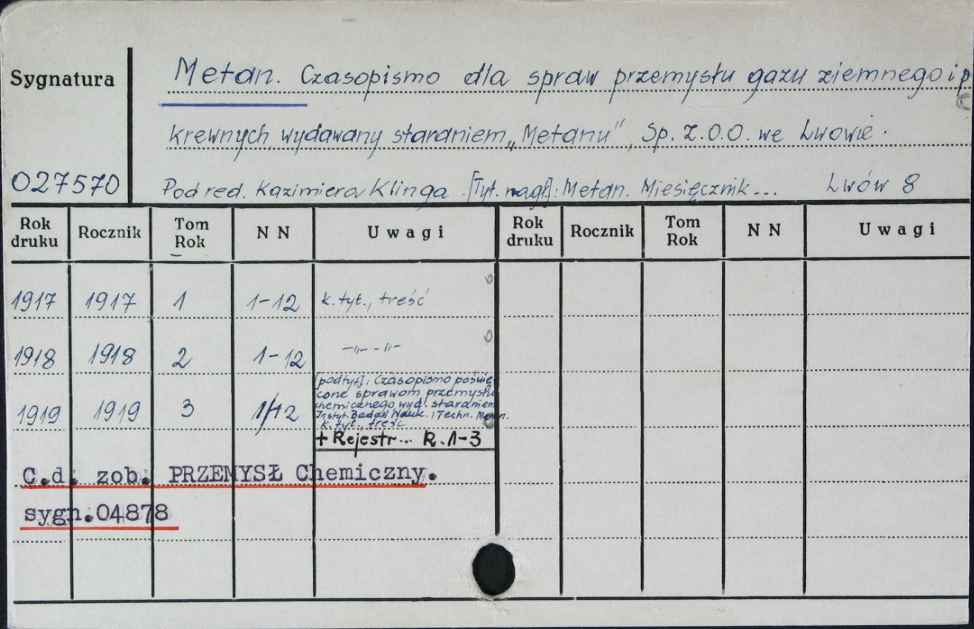 Sygnatura
Metan. Czasopismo dla spraw przemysłu gazu ziemnego i p
krewnych wydawany staraniem „Metanu", Sp. z.o.o. we Lwowie.
027570
Pod red. Kazimiera Klinga. [Tyt. nagł]: Metan. Miesięcznik... Lwów 8
Rok druku Rocznik Tom Rok NN Uwagi Rok druku Rocznik Tom Rok NN Uwagi
1917 1917 1 1-12 k. tyt., treść
1918 1918 2 1-12 -"- -"-
1919 1919 3 1/12 [podtyt]: Czasopismo poświę
cone sprawom przemysłu
chemicznego wyd. staraniem
Instyt. Badań Nauk. i Techn. Metan.
k. tyt., treść
+ Rejestr... R. 1-3
C.d. zob. PRZEMYSŁ Chemiczny.
sygn.04878